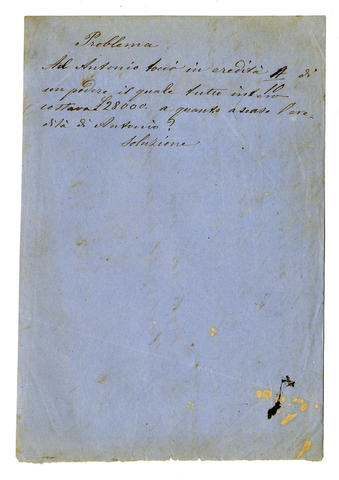 Problema
Ad Antonio toccò in eredità di
un podere, il quale tutto intero
costava £28000. a quanto ascese l'ere-
dità di Antonio?
Soluzione